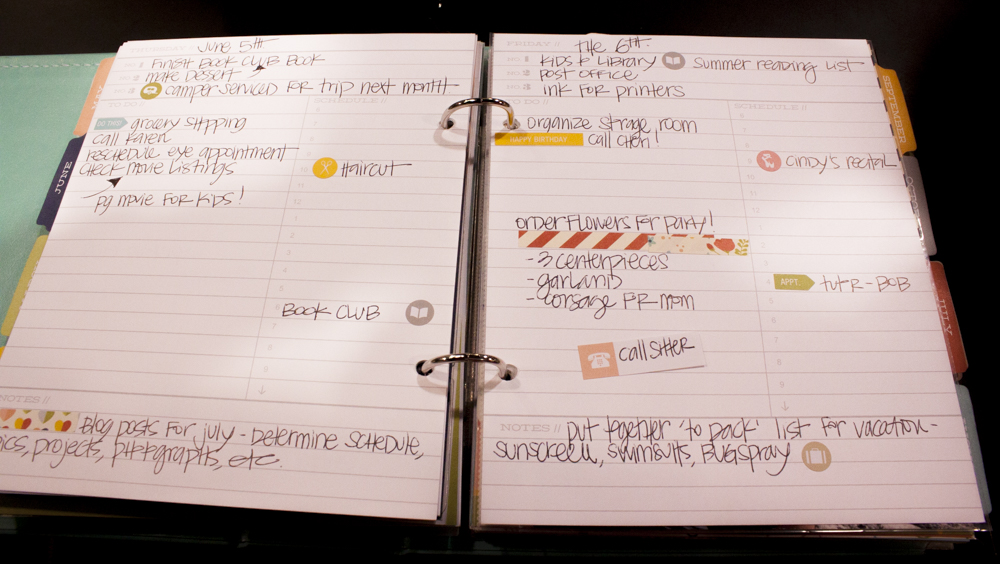 THURSDAY // June 5th
NO. 1 Finish Book Club Book
NO. 2 make Dessert
NO. 3 camper serviced for trip next month
TO DO //
SCHEDULE //
DO THIS grocery shpping
call Karen
reschedule eye appointment
check movie listings
pg movie for kids!
10 Haircut
Book Club
NOTES //
Blog posts for July - Determine schedule,
pics, projects, phtographs, etc.
FRIDAY // the 6th
NO. 1 kids to library summer reading list
NO. 2 post office
NO. 3 ink for printers
TO DO //
SCHEDULE //
organize strage room
HAPPY BIRTHDAY call cheri!
9 cindy's recital
order flowers for party!
- 3 centerpieces
- garland
- corsage for mom
4 APPT. tutor - Bob
call sitter
NOTES // put together 'to pack' list for vacation -
sunscreen, swimsuits, bugspray
JUNE
SEPTEMBER